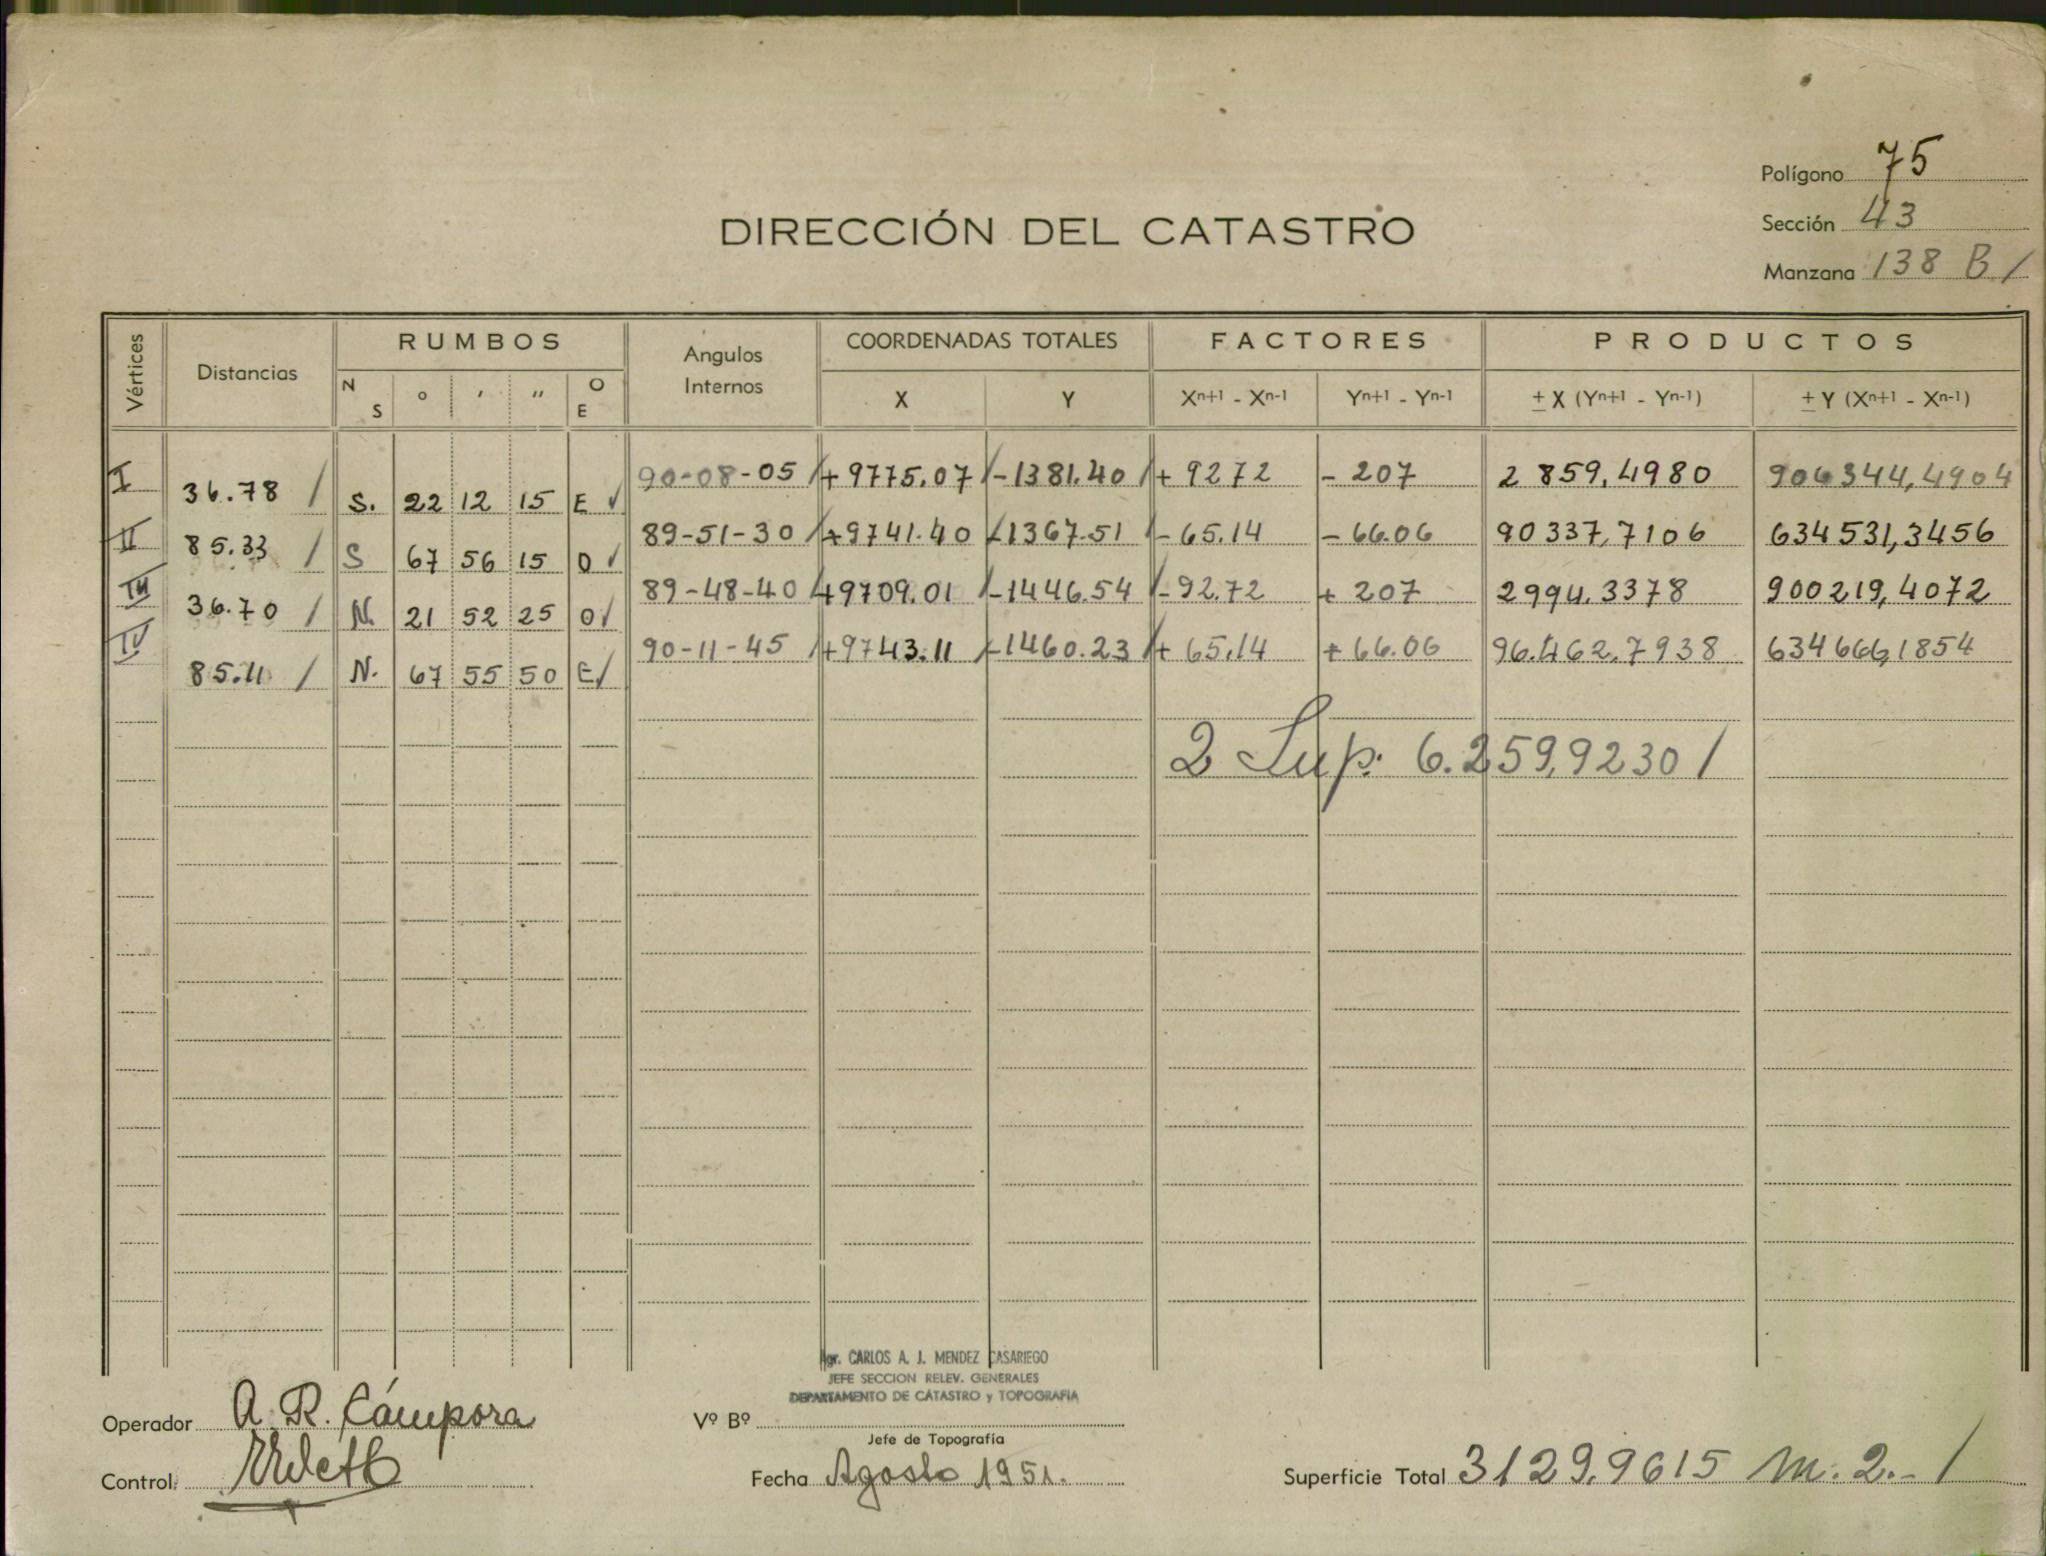 Polígono 75
DIRECCIÓN DEL CATASTRO
Sección 43
Manzana 138 B /
Vértices Distancias RUMBOS Angulos Internos COORDENADAS TOTALES FACTORES PRODUCTOS
N S ° ' " O E X Y Xn+1 - Xn-1 Yn+1 - Yn-1 ± X (Yn+1 - Yn-1) ± Y (Xn+1 - Xn-1)
I 36.78 / S. 22 12 15 E √ 90-08-05 / +9775.07 / -1381.40 / + 9272 - 207 2 859,4980 906344,4904
II 85.33 / S 67 56 15 O √ 89-51-30 / +9741.40 / -1367.51 / - 65.14 - 66.06 90337,7106 634531,3456
III 36.70 / N. 21 52 25 O / 89-48-40 / +9709.01 / -1446.54 / - 92.72 + 207 2994.3378 900219,4072
IV 85.11 / N. 67 55 50 E / 90-11-45 / +9743.11 / -1460.23 / + 65.14 + 66.06 96.462.7938 634666,1854
2 Sup. 6.259,9230 /
Agr. CARLOS A. J. MENDEZ CASARIEGO
JEFE SECCION RELEV. GENERALES
DEPARTAMENTO DE CATASTRO y TOPOGRAFIA
Operador A. R. Cámpora
Vº Bº
Jefe de Topografía
Control.
Fecha Agosto 1951.
Superficie Total 3129.9615 m. 2.- /